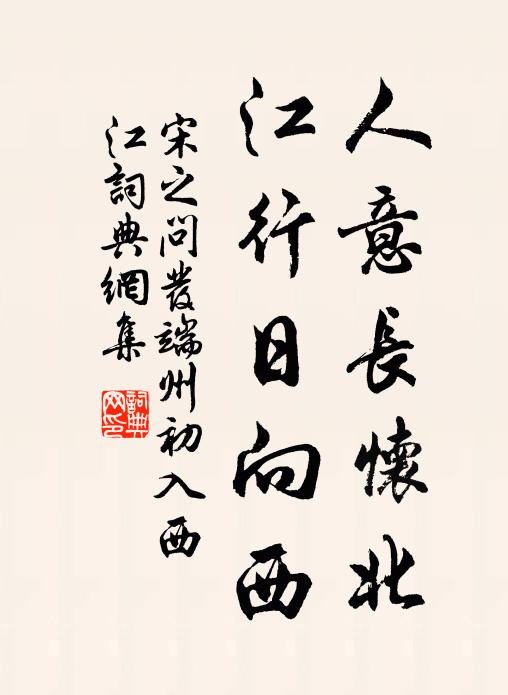 人意長懷北
江行日向西
宋之問發端州初入西
江詞典網集
詞典
网印